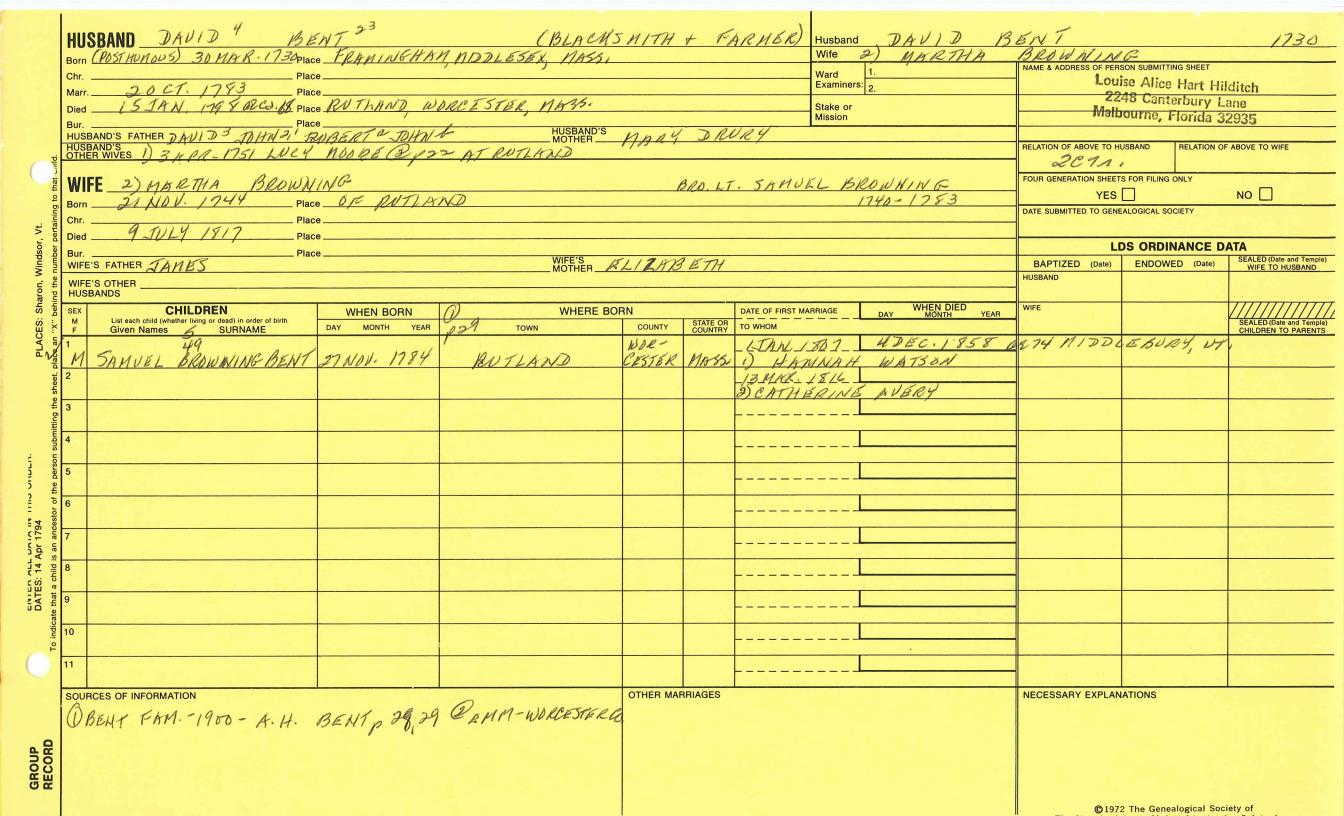 HUSBAND DAVID 4 BENT 23 (BLACKSMITH + FARMER)
Born (POSTHUMOUS) 30 MAR. 1730 Place FRAMINGHAM, MIDDLESEX, MASS.
Chr. Place
Marr. 2 OCT. 1783 Place
Died 15 JAN. 1798 Place RUTLAND, WORCESTER, MASS.
Bur. Place
HUSBAND'S FATHER DAVID3 JOHN2, ROBERT JOHN HUSBAND'S MOTHER MARY DRURY
HUSBAND'S OTHER WIVES 1) 3 APR-1751 LUCY MOORE @ p22 AT RUTLAND
Husband DAVID BENT 1730
Wife 2) MARTHA BROWNING
Ward Examiners: 1.
2.
Stake or Mission
NAME & ADDRESS OF PERSON SUBMITTING SHEET
Louise Alice Hart Hilditch
2248 Canterbury Lane
Malbourne, Florida 32935
RELATION OF ABOVE TO HUSBAND RELATION OF ABOVE TO WIFE
2C7r.
FOUR GENERATION SHEETS FOR FILING ONLY
YES NO
DATE SUBMITTED TO GENEALOGICAL SOCIETY
WIFE 2) MARTHA BROWNING BRO. LT. SAMUEL BROWNING
Born 21 NOV. 1744 Place OF RUTLAND 1740-1783
Chr. Place
Died 9 JULY 1817 Place
Bur. Place
WIFE'S FATHER JAMES WIFE'S MOTHER ELIZABETH
WIFE'S OTHER HUSBANDS
LDS ORDINANCE DATA
BAPTIZED (Date) ENDOWED (Date) SEALED (Date and Temple) WIFE TO HUSBAND
HUSBAND
WIFE
SEALED (Date and Temple) CHILDREN TO PARENTS
SEX M F
CHILDREN
List each child (whether living or dead) in order of birth
Given Names 5 SURNAME
WHEN BORN
DAY MONTH YEAR
① p29 WHERE BORN
TOWN COUNTY STATE OR COUNTRY
DATE OF FIRST MARRIAGE
TO WHOM
WHEN DIED
DAY MONTH YEAR
1 49 WOR- 1 JAN 1807 4 DEC. 1858 AE 74 MIDDLEBURY, VT.
M SAMUEL BROWNING BENT 27 NOV. 1784 RUTLAND CESTER MASS. 1) HANNAH WATSON
2 13 MAR. 1816
2) CATHERINE AVERY
3
4
5
6
7
8
9
10
11
SOURCES OF INFORMATION
① BENT FAM.-1900- A.H. BENT p 28, 29 ② AMM-WORCESTER CO
OTHER MARRIAGES
NECESSARY EXPLANATIONS
©1972 The Genealogical Society of
PLACES: Sharon, Windsor, Vt.
To indicate that a child is an ancestor of the person submitting the sheet, place an "X" behind the number pertaining to that child.
ENTER ALL DATA IN THIS ORDER:
DATES: 14 Apr 1794
GROUP RECORD